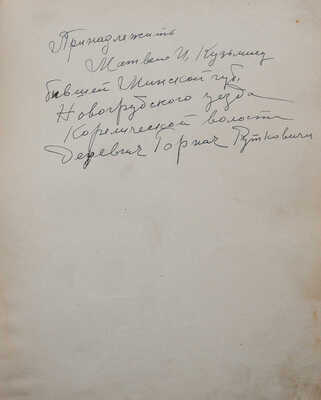 Принадлежить
Матвею И, Кузьмицу
бывшей Минской губ,
Новогрудского уезда
Корелической волости
Деревни Горнач Руткович